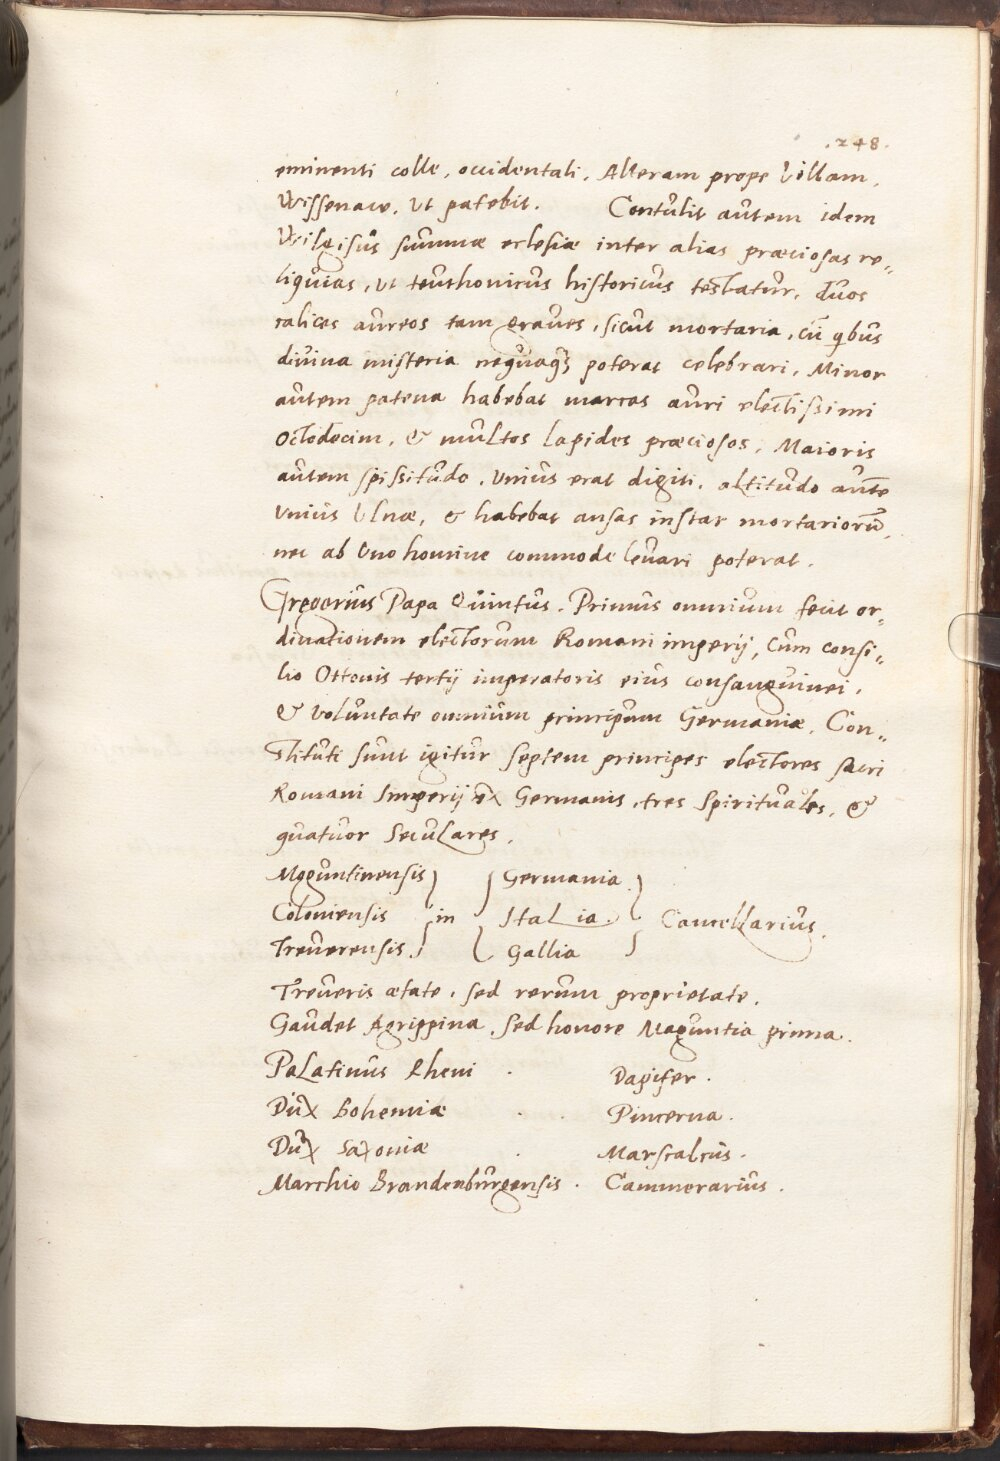 .248.
eminenti colle, occidentali, Alteram prope Villam,
Wissenaw, Ut patebit. Contulit autem idem
Wilgisus summæ eclesiæ inter alias præciosas re„
liquias, ut teuthonicus historicus testatur, duos
calices aureos tam graues, sicut mortaria, cū qbus
diuina misteria nequaqȝ poterat celebrari, Minor
autem patena habebat marcas auri electissimi
Octodecim, & multos lapides præciosos, Maioris
autem spissitudo, Unius erat digiti, altitudo autē
Unius Ulnæ, & habebat ansas instar mortariorū,
nec ab Uno homine commode leuari poterat.
Gregorius Papa Quintus. Primus omnium fecit or„
dinationem electorum Romani imperij, Cum consi„
lio Ottonis tertij imperatoris eius consanguinei,
& Voluntate omnium principum Germaniæ, Con„
stituti sunt igitur septem principes electores sacri
Romani Imperij ex Germanis, tres spirituales, &
quatuor Seculares.
Moguntinensis } { Germania }
Coloniensis } in Italia. } Cancellarius.
Treuerensis. } { Gallia }
Treueris ætate, sed rerum proprietate,
Gaudet Agrippina, sed honore Maguntia prima.
Palatinus Rheni . Dapifer.
Dux Bohemiæ . . Pincerna.
Dux Saxoniæ . Marscalcus.
Marchio Brandenburgensis . Cammerarius.